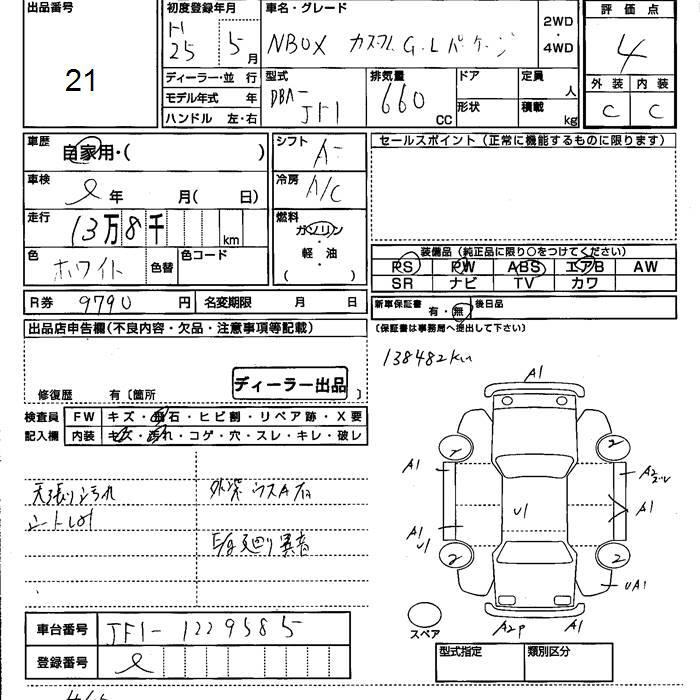 出品番号
21
初度登録年月
H 25 5月
車名・グレード
NBOX カスタム G・Lパッケージ
2WD・4WD
評価点
4
外装 内装
C C
ディーラー・並行
モデル年式 年
ハンドル 左・右
型式
DBA-JF1
排気量
660 CC
ドア
形状
定員 人
積載 kg
車歴
自家用・( )
車検
年 月( 日)
走行
13万8千 km
色
ホワイト
色替
色コード
シフト
A
冷房
A/C
燃料
ガソリン・軽油
( )
セールスポイント(正常に機能するものに限ります)
装備品(純正品に限り○をつけてください)
PS PW ABS エアB AW
SR ナビ TV カワ
R券 9790円
名変期限 月 日
新車保証書
有・無
後日品
(保証書は事務局へ提出して下さい)
出品店申告欄(不良内容・欠品・注意事項等記載)
ディーラー出品
修復歴 有〔箇所 〕
検査員記入欄
FW キズ・飛石・ヒビ割・リペア跡・X要
内装 キズ・汚れ・コゲ・穴・スレ・キレ・破レ
138482km
A1
2 2
A1 A2
U1 A1
A1
U1
2 2
UA1
A2P A1
スペア
天張り汚れ
外装 ウスA有
E/g廻り異音
車台番号 JF1-1229585
登録番号
型式指定 類別区分